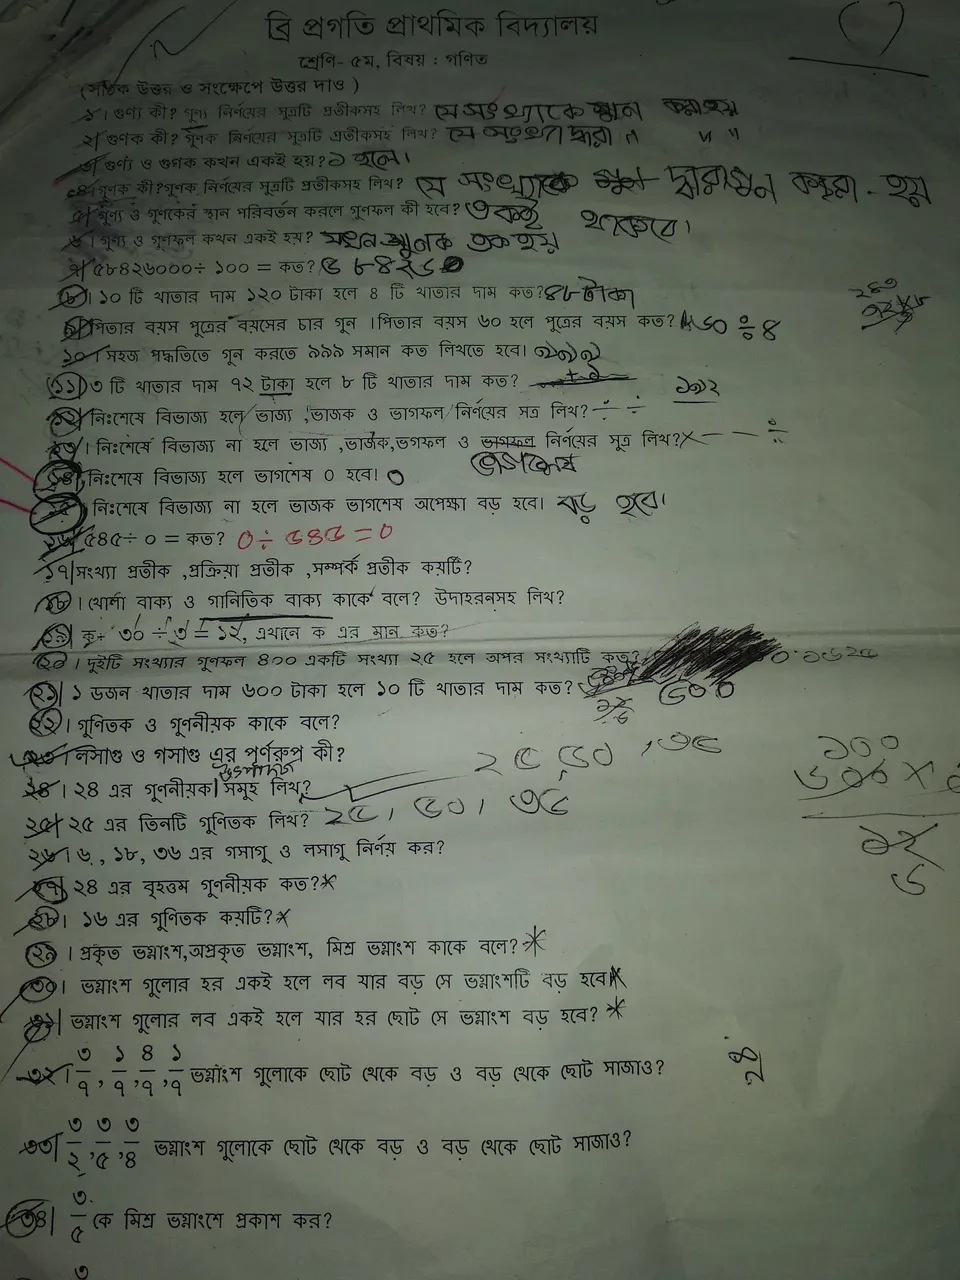 ব্রি প্রগতি প্রাথমিক বিদ্যালয়
শ্রেণি- ৫ম, বিষয় : গণিত
(সঠিক উত্তর ও সংক্ষেপে উত্তর দাও )
১। গুণ্য কী? গুণ্য নির্ণয়ের সূত্রটি প্রতীকসহ লিখ? যে সংখ্যাকে গুন করা হয়
২। গুণক কী? গুণক নির্ণয়ের সূত্রটি প্রতীকসহ লিখ? যে সংখ্যা দ্বারা " " "
৩। গুণ্য ও গুণক কখন একই হয়? ১ হলে।
৪। গুণক কী?গুণক নির্ণয়ের সূত্রটি প্রতীকসহ লিখ? যে সংখ্যাকে গুন দ্বারা গুন করা হয়
৫। গুণ্য ও গুণকের স্থান পরিবর্তন করলে গুণফল কী হবে? একই থাকবে।
৬। গুণ্য ও গুণফল কখন একই হয়? যখন গুনক এক হয়
৭। ৫৮৪২৬০০০÷ ১০০ = কত? ৫৮৪২৬০
৮। ১০ টি খাতার দাম ১২০ টাকা হলে ৪ টি খাতার দাম কত? ৪৮ টাকা
৯। পিতার বয়স পুত্রের বয়সের চার গুন ।পিতার বয়স ৬০ হলে পুত্রের বয়স কত? ৬০ ÷ ৪
১০। সহজ পদ্ধতিতে গুন করতে ৯৯৯ সমান কত লিখতে হবে। ৯৯৯ +১
১১। ৩ টি খাতার দাম ৭২ টাকা হলে ৮ টি খাতার দাম কত? ১৯২
১২। নিঃশেষে বিভাজ্য হলে ভাজ্য ,ভাজক ও ভাগফল নির্ণয়ের সত্র লিখ? ÷ ÷
১৩। নিঃশেষে বিভাজ্য না হলে ভাজ্য ,ভাজক,ভগফল ও ভাগফল নির্ণয়ের সুত্র লিখ? × – – ÷
ভাগশেষ
১৪। নিঃশেষে বিভাজ্য হলে ভাগশেষ ০ হবে। ০
১৫। নিঃশেষে বিভাজ্য না হলে ভাজক ভাগশেষ অপেক্ষা বড় হবে। বড় হবে।
১৬। ৫৪৫÷ ০ = কত? ০ ÷ ৫৪৫ = ০
১৭। সংখ্যা প্রতীক ,প্রক্রিয়া প্রতীক ,সম্পর্ক প্রতীক কয়টি?
১৮। খোলা বাক্য ও গানিতিক বাক্য কাকে বলে? উদাহরনসহ লিখ?
১৯। ক+ ৩০ ÷ ৩ = ১২, এখানে ক এর মান কত?
২০। দুইটি সংখ্যার গুণফল ৪০০ একটি সংখ্যা ২৫ হলে অপর সংখ্যাটি কত?
২১। ১ ডজন খাতার দাম ৬০০ টাকা হলে ১০ টি খাতার দাম কত? ৫০০
২২। গুণিতক ও গুণনীয়ক কাকে বলে?
২৩। লসাগু ও গসাগু এর পূর্ণরুপ কী?
২৪। ২৪ এর গুণনীয়ক সমূহ লিখ? ২৫ ৫০ , ৭৫
২৫। ২৫ এর তিনটি গুণিতক লিখ? ২৫, ৫০, ৭৫
২৬। ৬ , ১৮, ৩৬ এর গসাগু ও লসাগু নির্ণয় কর?
২৭। ২৪ এর বৃহত্তম গুণনীয়ক কত?*
২৮। ১৬ এর গুণিতক কয়টি?*
২৯। প্রকৃত ভগ্নাংশ,অপ্রকৃত ভগ্নাংশ, মিশ্র ভগ্নাংশ কাকে বলে?*
৩০। ভগ্নাংশ গুলোর হর একই হলে লব যার বড় সে ভগ্নাংশটি বড় হবে।*
৩১। ভগ্নাংশ গুলোর লব একই হলে যার হর ছোট সে ভগ্নাংশ বড় হবে? *
৩২। ৩/৭, ১/৭, ৪/৭, ১/৭ ভগ্নাংশ গুলোকে ছোট থেকে বড় ও বড় থেকে ছোট সাজাও?
৩৩। ৩/২, ৩/৫, ৩/৪ ভগ্নাংশ গুলোকে ছোট থেকে বড় ও বড় থেকে ছোট সাজাও?
৩৪। ৩/৫ কে মিশ্র ভগ্নাংশে প্রকাশ কর?
৩